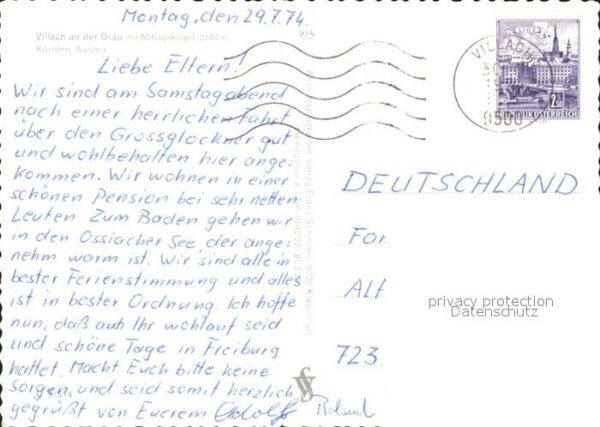 Montag, den 29.7.74.
Villach an der Drau mit Mittagskogel, 2144m
Kärnten, Austria
Liebe Eltern!
Wir sind am Samstagabend
nach einer herrlichen Fahrt
über den Grossglockner gut
und wohlbehalten hier ange-
kommen. Wir wohnen in einer
schönen Pension bei sehr netten
Leuten. Zum Baden gehen wir
in den Ossiacher See, der ange-
nehm warm ist. Wir sind alle in
bester Ferienstimmung und alles
ist in bester Ordnung. Ich hoffe
nun, daß auch Ihr wohlauf seid
und schöne Tage in Freiburg
hattet. Macht Euch bitte keine
Sorgen und seid somit herzlich
gegrüßt von Euerem Adolf
Roland
VILLACH
9500
REPUBLIK ÖSTERREICH
DEUTSCHLAND
Fa
Al
723
privacy protection
Datenschutz